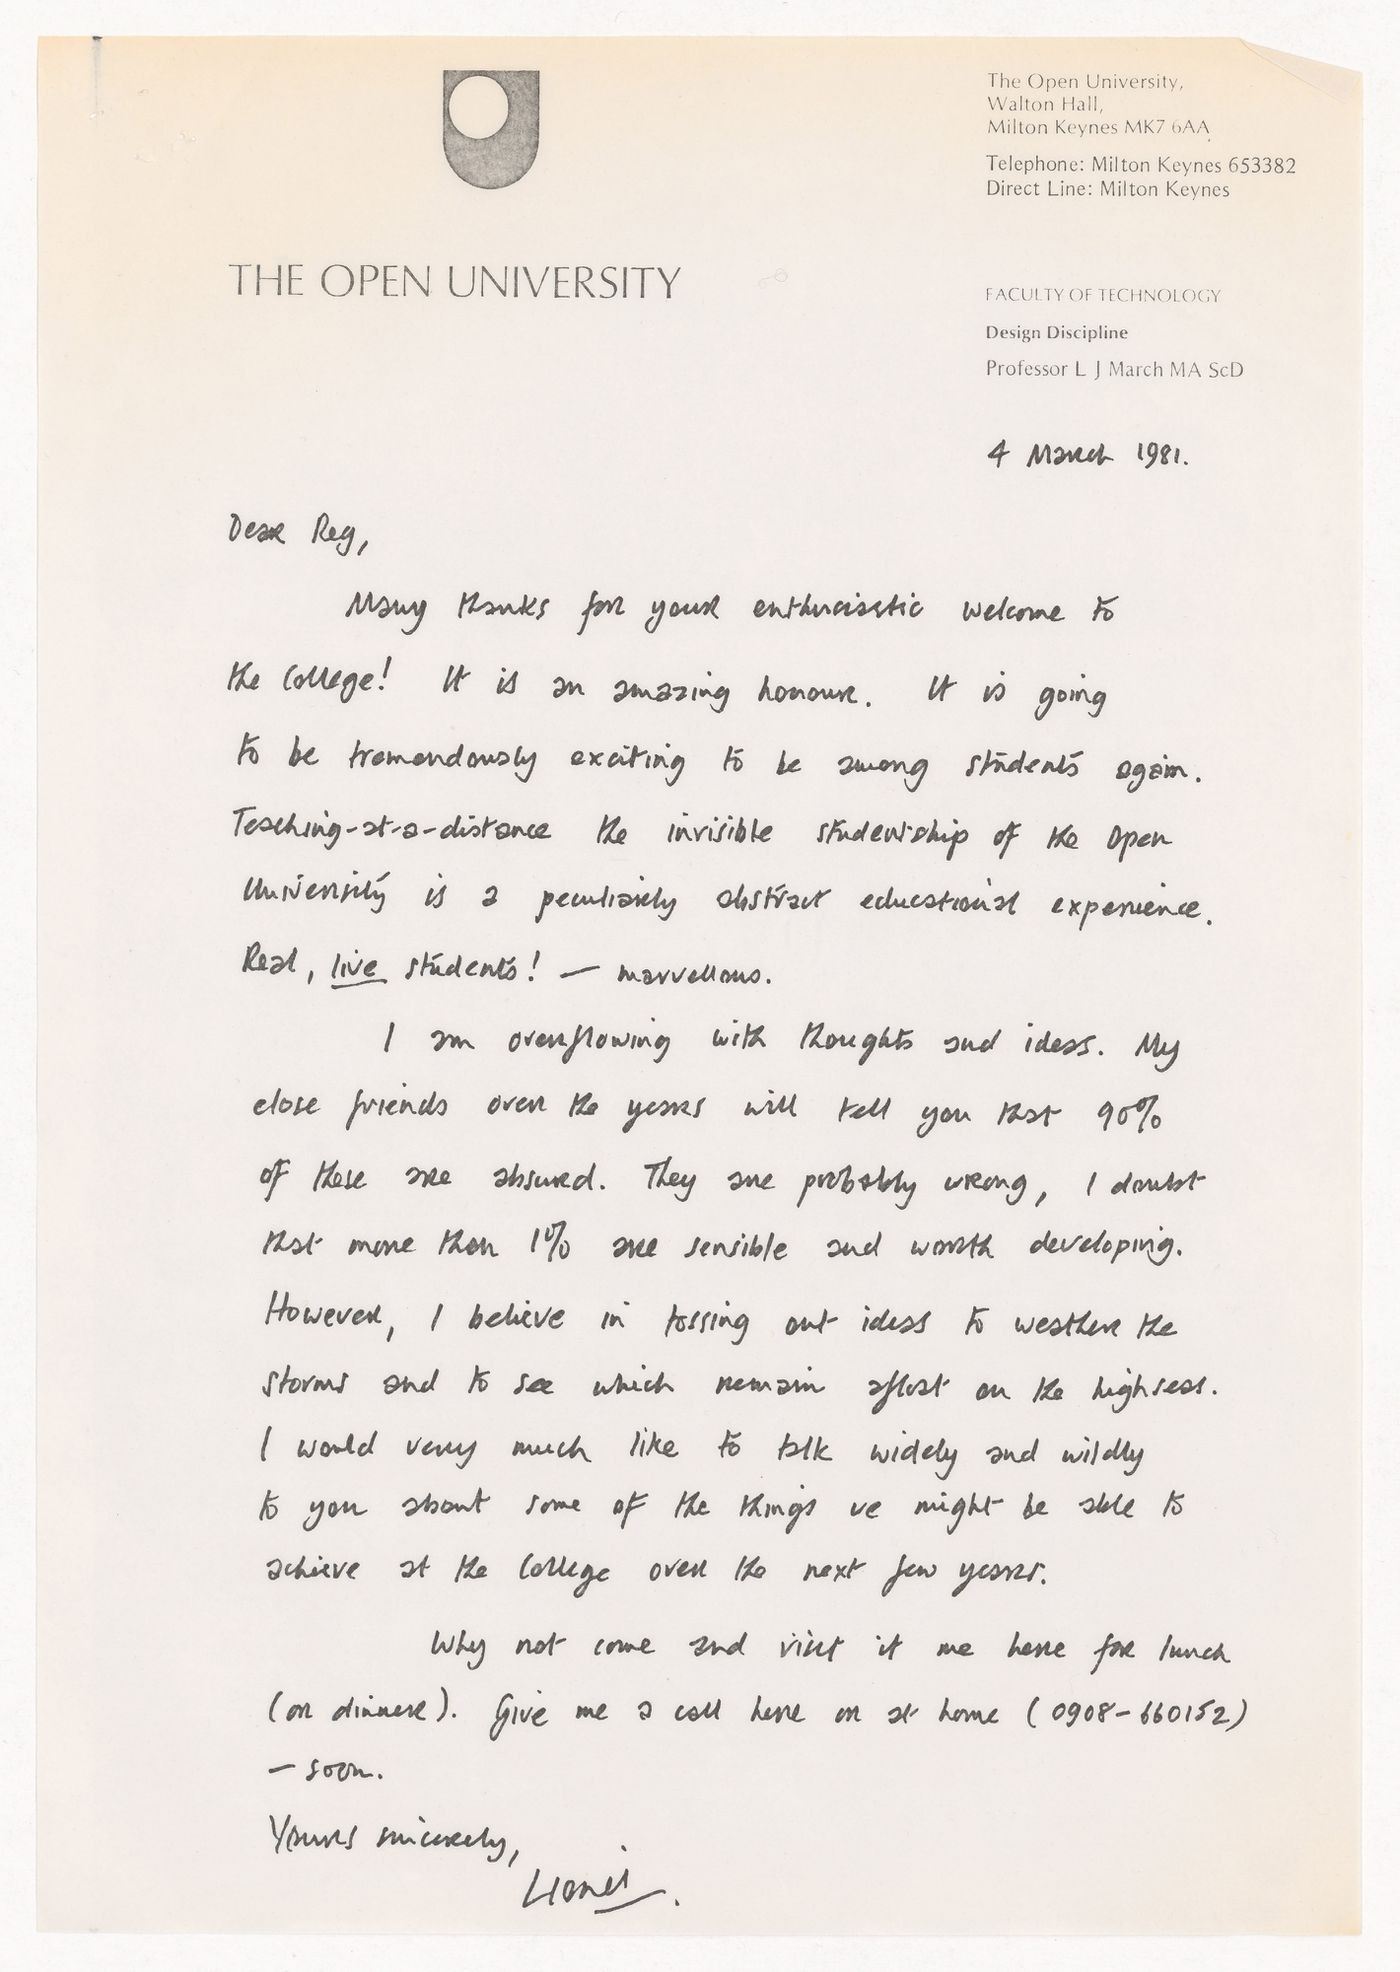 The Open University,
Walton Hall,
Milton Keynes MK7 6AA
Telephone: Milton Keynes 653382
Direct Line: Milton Keynes
THE OPEN UNIVERSITY
FACULTY OF TECHNOLOGY
Design Discipline
Professor L J March MA ScD
4 March 1981.
Dear Reg,
Many thanks for your enthusiastic welcome to
the College! It is an amazing honour. It is going
to be tremendously exciting to be among students again.
Teaching-at-a-distance the invisible studentship of the Open
University is a peculiarly abstract educational experience.
Real, live students! — marvellous.
I am overflowing with thoughts and ideas. My
close friends over the years will tell you that 90%
of these are absurd. They are probably wrong, I doubt
that more than 1% are sensible and worth developing.
However, I believe in tossing out ideas to weather the
storms and to see which remain afloat on the highseas.
I would very much like to talk widely and wildly
to you about some of the things we might be able to
achieve at the College over the next few years.
Why not come and visit it me here for lunch
(or dinner). Give me a call here or at home (0908-660152)
— soon.
Yours sincerely,
Lionel.